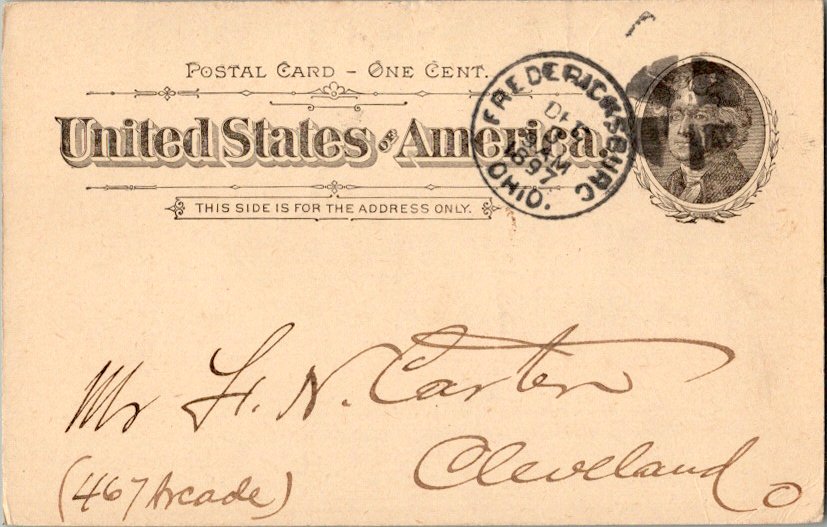 POSTAL CARD – ONE CENT.
United States of America.
THIS SIDE IS FOR THE ADDRESS ONLY.
FREDERICKSBURG
DEC
AM
1897
OHIO.
Mr H. N. Carter
Cleveland O
(467 Arcade)